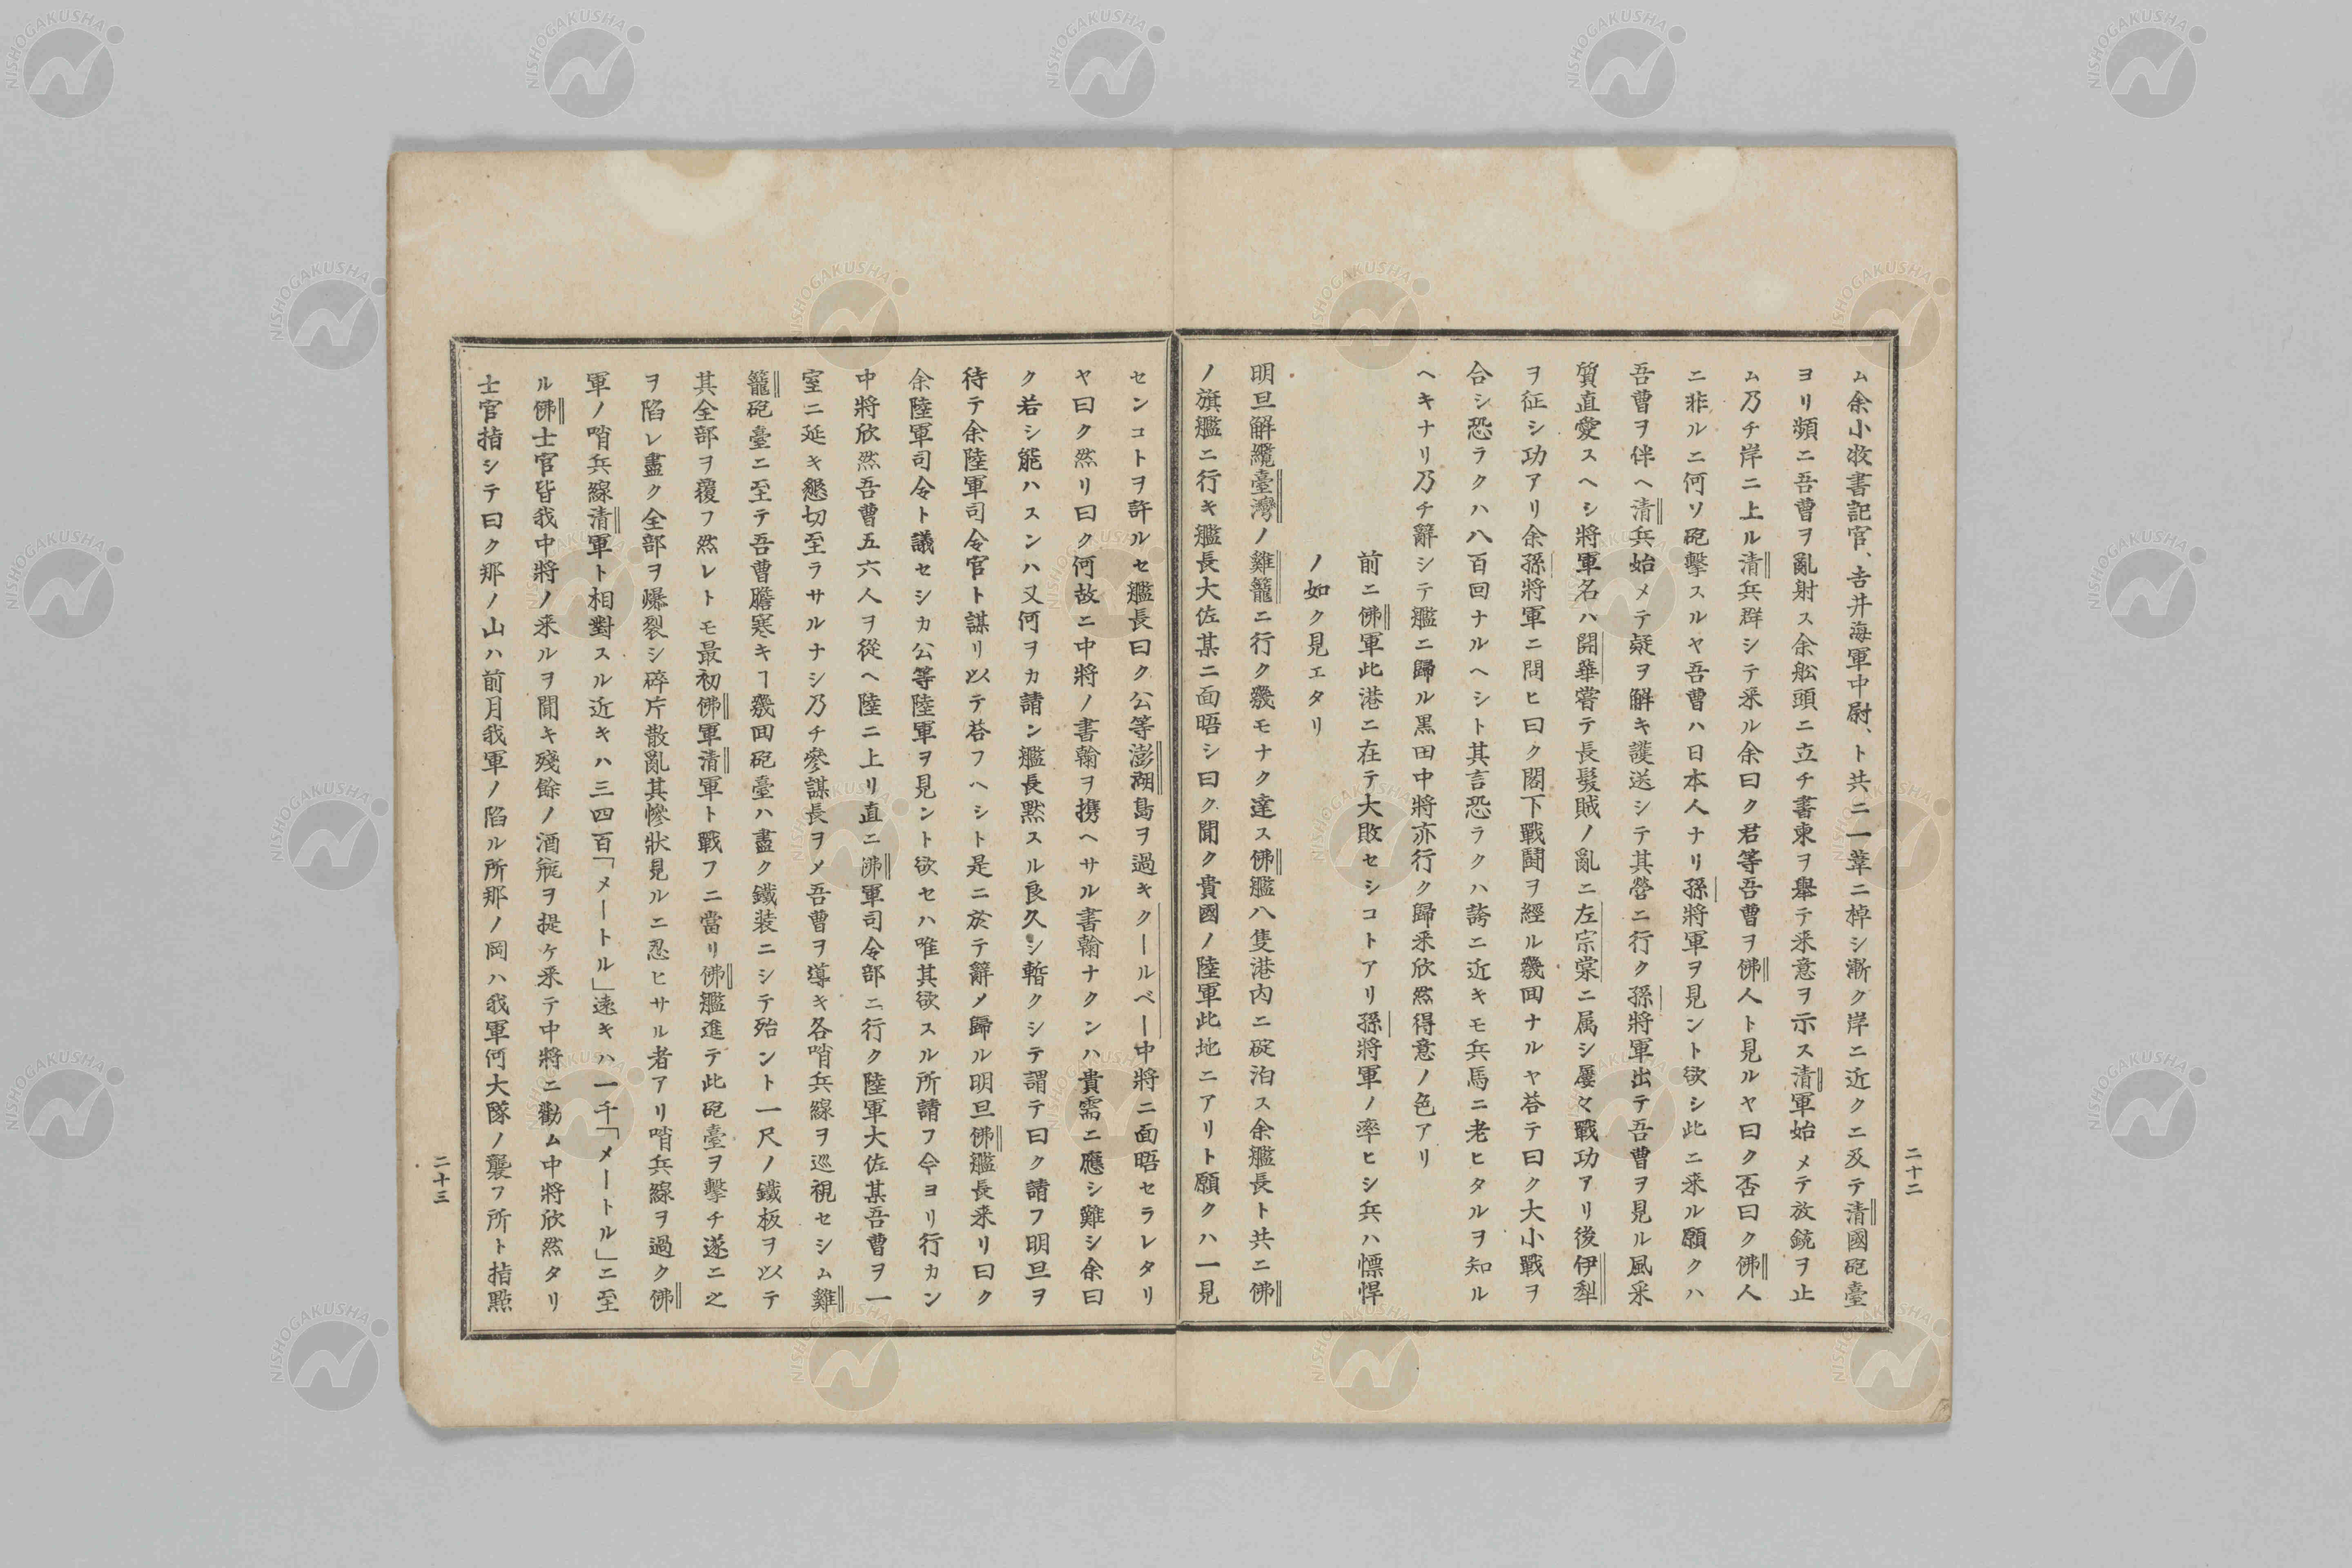 ム余小牧書記官、吉井海軍中尉、ト共ニ一葦ニ棹シ漸ク岸ニ近クニ及テ清國砲臺
ヨリ頻ニ吾曹ヲ亂射ス余舩頭ニ立チ書東ヲ舉テ来意ヲ示ス清軍始メテ放銃ヲ止
ム乃チ岸ニ上ル清兵群シテ来ル余曰ク君等吾曹ヲ佛人ト見ルヤ曰ク否曰ク佛人
ニ非ルニ何ソ砲擊スルヤ吾曹ハ日本人ナリ孫將軍ヲ見ント欲シ此ニ来ル願クハ
吾曹ヲ伴ヘ清兵始メテ疑ヲ解キ護送シテ其營ニ行ク孫將軍出テ吾曹ヲ見ル風采
質直愛スヘシ將軍名ハ開華嘗テ長髮賊ノ亂ニ左宗棠ニ属シ屢々戰功アリ後伊犁
ヲ征シ功アリ余孫將軍ニ問ヒ曰ク閣下戰鬪ヲ經ル幾回ナルヤ荅テ曰ク大小戰ヲ
合シ恐ラクハ八百回ナルヘシト其言恐ラクハ誇ニ近キモ兵馬ニ老ヒタルヲ知ル
ヘキナリ乃チ辭シテ艦ニ歸ル黒田中將亦行ク歸来欣然得意ノ色アリ
前ニ佛軍此港ニ在テ大敗セシコトアリ孫將軍ノ率ヒシ兵ハ慓悍
ノ如ク見エタリ
明旦解纜臺灣ノ雞籠ニ行ク幾モナク達ス佛艦八隻港内ニ碇泊ス余艦長ト共ニ佛
ノ旗艦ニ行キ艦長大佐某ニ面晤シ曰ク聞ク貴國ノ陸軍此地ニアリト願クハ一見
二十二
センコトヲ許ルセ艦長曰ク公等澎湖島ヲ過キクールベー中將ニ面晤セラレタリ
ヤ曰ク然リ曰ク何故ニ中將ノ書翰ヲ携ヘサル書翰ナクンハ貴需ニ應シ難シ余曰
ク若シ能ハスンハ又何ヲカ請ン艦長黙スル良久シ暫クシテ謂テ曰ク請フ明旦ヲ
待テ余陸軍司令官ト謀リ以テ荅フヘシト是ニ於テ辭メ歸ル明旦佛艦長来リ曰ク
余陸軍司令ト議セシカ公等陸軍ヲ見ント欲セハ唯其欲スル所請フ今ヨリ行カン
中將欣然吾曹五六人ヲ從ヘ陸ニ上リ直ニ佛軍司令部ニ行ク陸軍大佐某吾曹ヲ一
室ニ延キ懇切至ラサルナシ乃チ參謀長ヲメ吾曹ヲ導キ各哨兵線ヲ巡視セシム雞
籠砲臺ニ至テ吾曹膽寒キヿ幾回砲臺ハ盡ク鐵装ニシテ殆ント一尺ノ鐵板ヲ以テ
其全部ヲ覆フ然レトモ最初佛軍清軍ト戰フニ當リ佛艦進テ此砲臺ヲ擊チ遂ニ之
ヲ陷レ盡ク全部ヲ爆裂シ碎片散亂其慘狀見ルニ忍ヒサル者アリ哨兵線ヲ過ク佛
軍ノ哨兵線清軍ト相對スル近キハ三四百「メートル」遠キハ一千「メートル」ニ至
ル佛士官皆我中將ノ来ルヲ聞キ殘餘ノ酒瓶ヲ提ケ来テ中將ニ勸ム中將欣然タリ
士官指シテ曰ク那ノ山ハ前月我軍ノ陷ル所那ノ岡ハ我軍何大隊ノ襲フ所ト指點
二十三